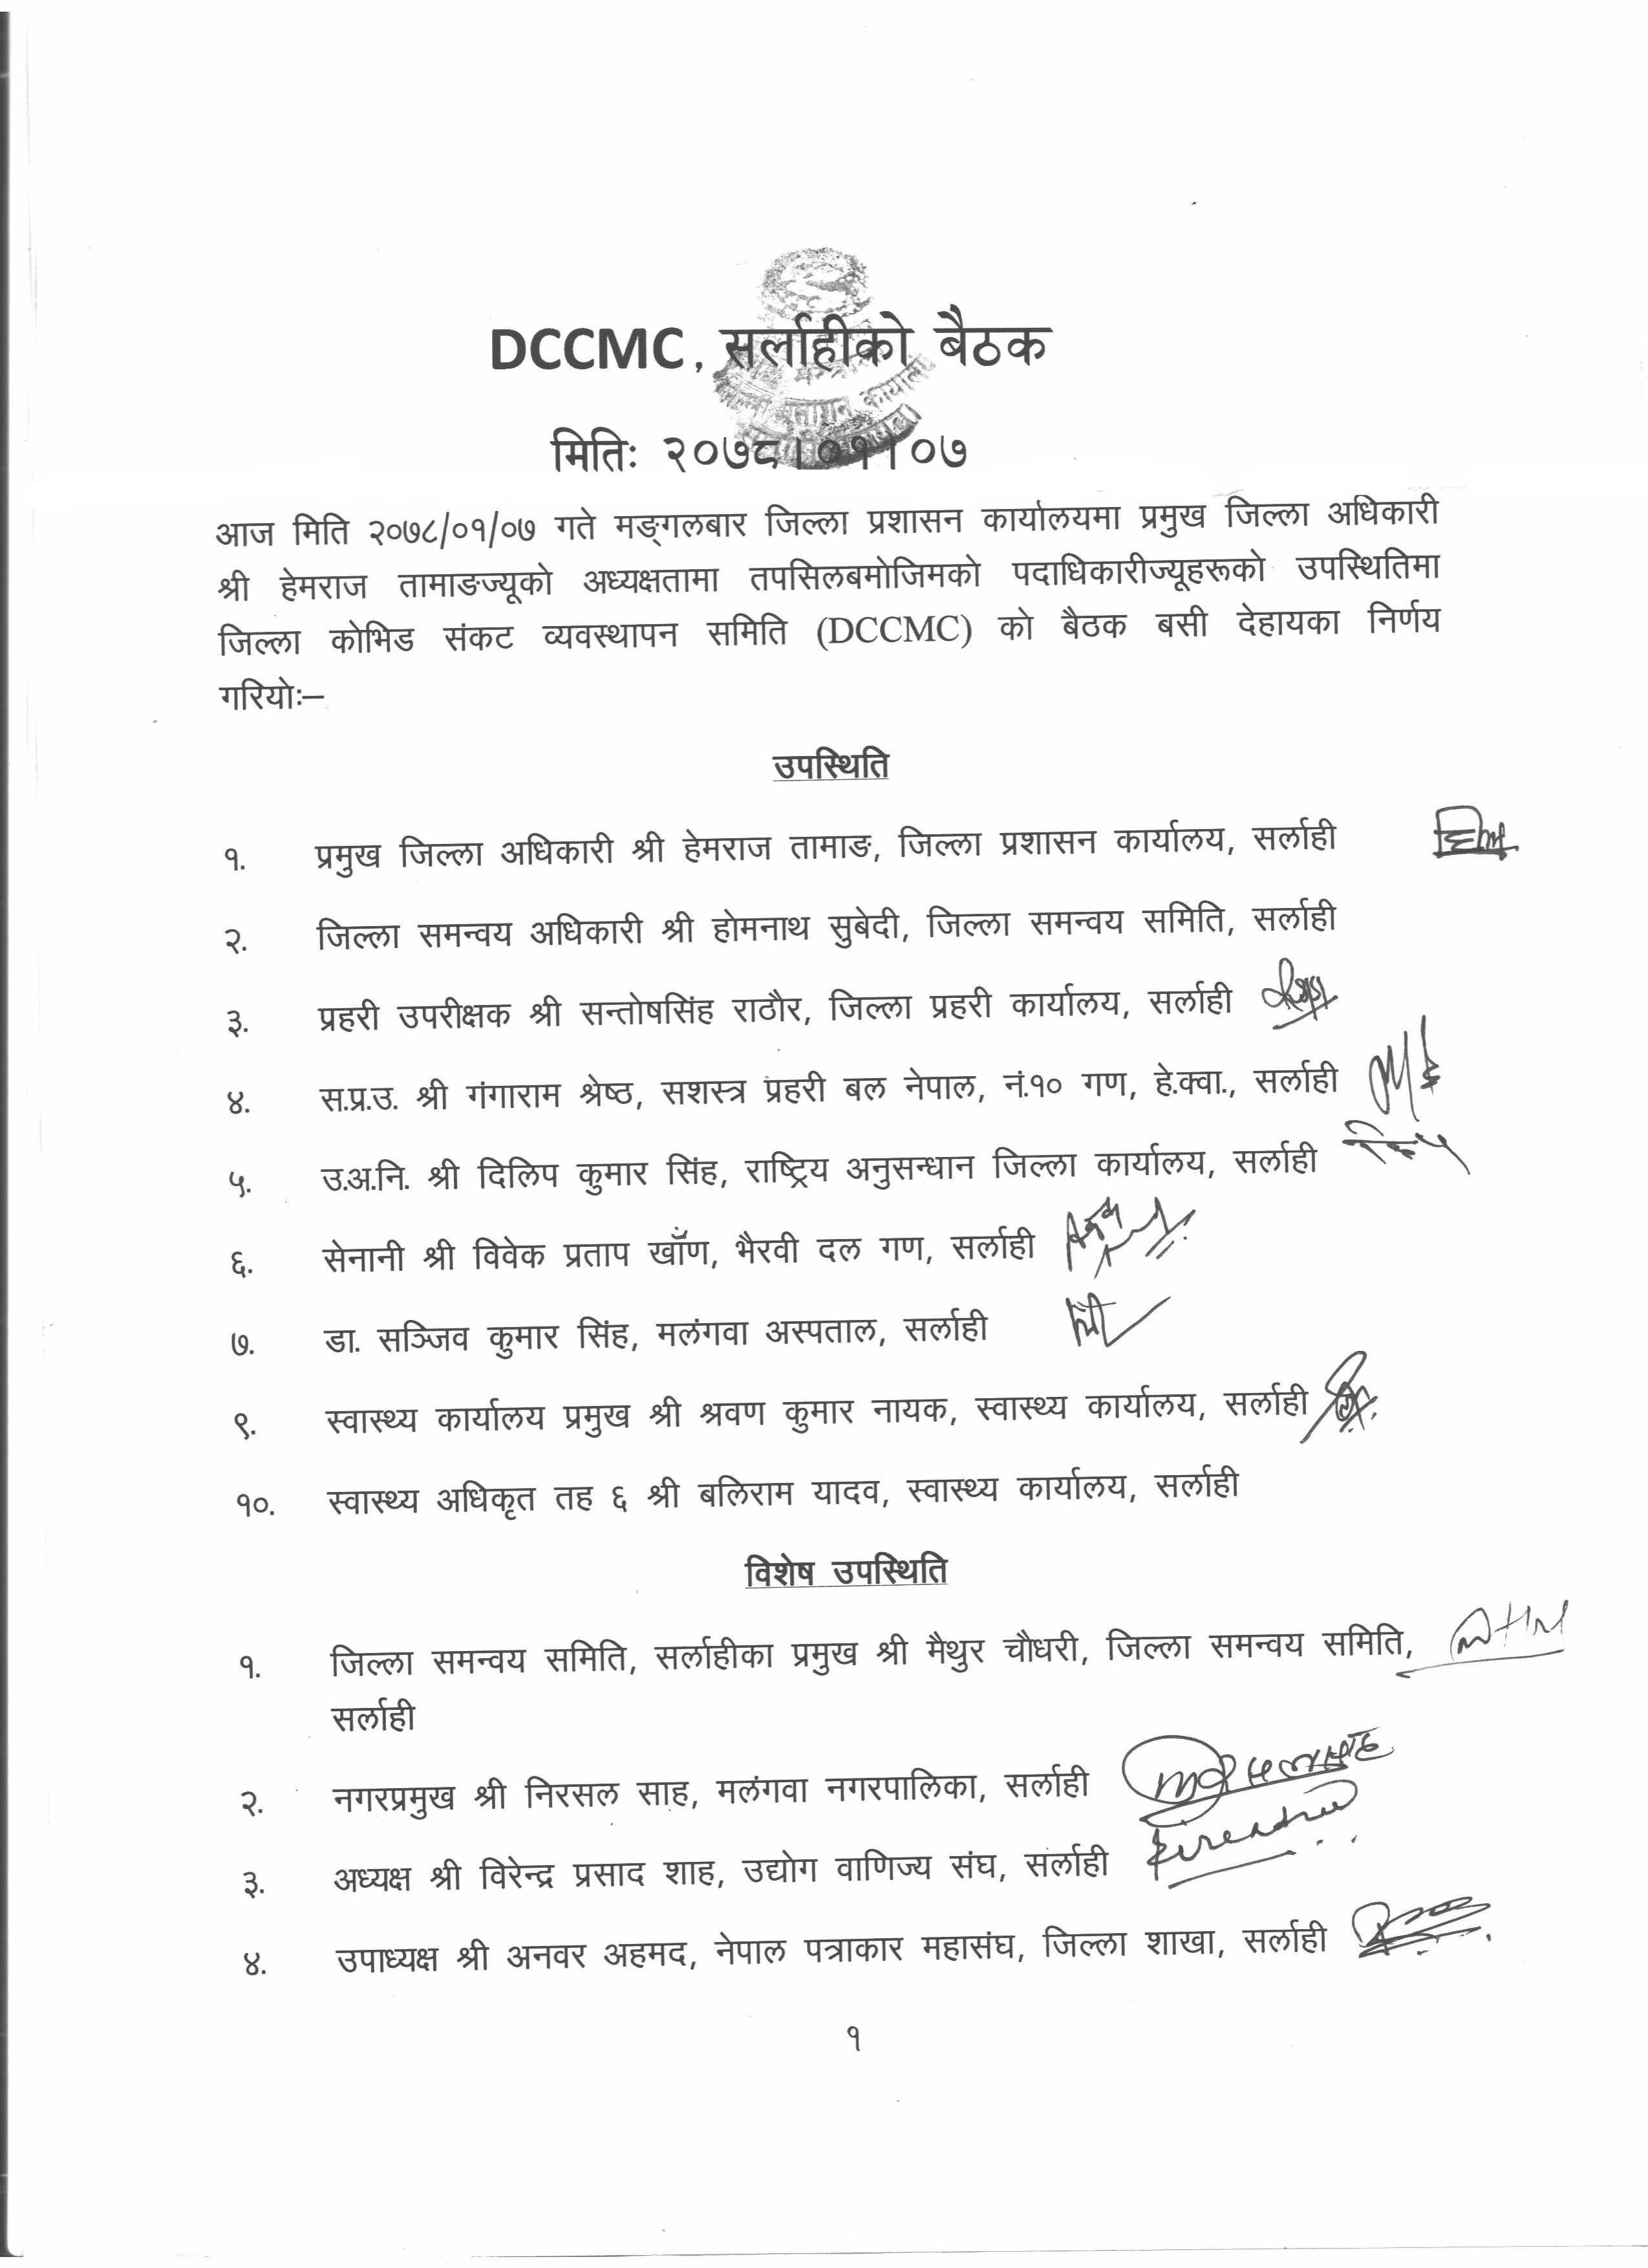 DCCMC, सर्लाहीको बैठक
मितिः २०७८।०१।०७
आज मिति २०७८/०१/०७ गते मङ्गलबार जिल्ला प्रशासन कार्यालयमा प्रमुख जिल्ला अधिकारी
श्री हेमराज तामाङज्यूको अध्यक्षतामा तपसिलबमोजिमको पदाधिकारीज्यूहरूको उपस्थितिमा
जिल्ला कोभिड संकट व्यवस्थापन समिति (DCCMC) को बैठक बसी देहायका निर्णय
गरियोः–
उपस्थिति
१. प्रमुख जिल्ला अधिकारी श्री हेमराज तामाङ, जिल्ला प्रशासन कार्यालय, सर्लाही
२. जिल्ला समन्वय अधिकारी श्री होमनाथ सुबेदी, जिल्ला समन्वय समिति, सर्लाही
३. प्रहरी उपरीक्षक श्री सन्तोषसिंह राठौर, जिल्ला प्रहरी कार्यालय, सर्लाही
४. स.प्र.उ. श्री गंगाराम श्रेष्ठ, सशस्त्र प्रहरी बल नेपाल, नं.१० गण, हे.क्वा., सर्लाही
५. उ.अ.नि. श्री दिलिप कुमार सिंह, राष्ट्रिय अनुसन्धान जिल्ला कार्यालय, सर्लाही
६. सेनानी श्री विवेक प्रताप खाँण, भैरवी दल गण, सर्लाही
७. डा. सञ्जिव कुमार सिंह, मलंगवा अस्पताल, सर्लाही
९. स्वास्थ्य कार्यालय प्रमुख श्री श्रवण कुमार नायक, स्वास्थ्य कार्यालय, सर्लाही
१०. स्वास्थ्य अधिकृत तह ६ श्री बलिराम यादव, स्वास्थ्य कार्यालय, सर्लाही
विशेष उपस्थिति
१. जिल्ला समन्वय समिति, सर्लाहीका प्रमुख श्री मैथुर चौधरी, जिल्ला समन्वय समिति,
सर्लाही
२. नगरप्रमुख श्री निरसल साह, मलंगवा नगरपालिका, सर्लाही
३. अध्यक्ष श्री विरेन्द्र प्रसाद शाह, उद्योग वाणिज्य संघ, सर्लाही
४. उपाध्यक्ष श्री अनवर अहमद, नेपाल पत्राकार महासंघ, जिल्ला शाखा, सर्लाही
१